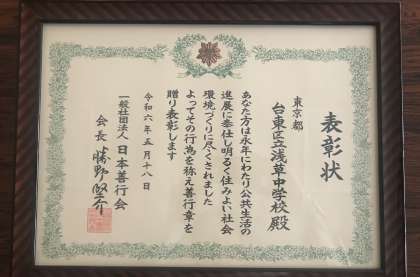 表彰状
東京都
台東区立浅草中学校殿
あなた方は永年にわたり公共生活の
進展に奉仕し明るく住みよい社会
環境づくりに尽くされました
よってその行為を称え善行章を
贈り表彰します
令和六年五月十八日
一般社団法人 日本善行会
会長 勝野堅介